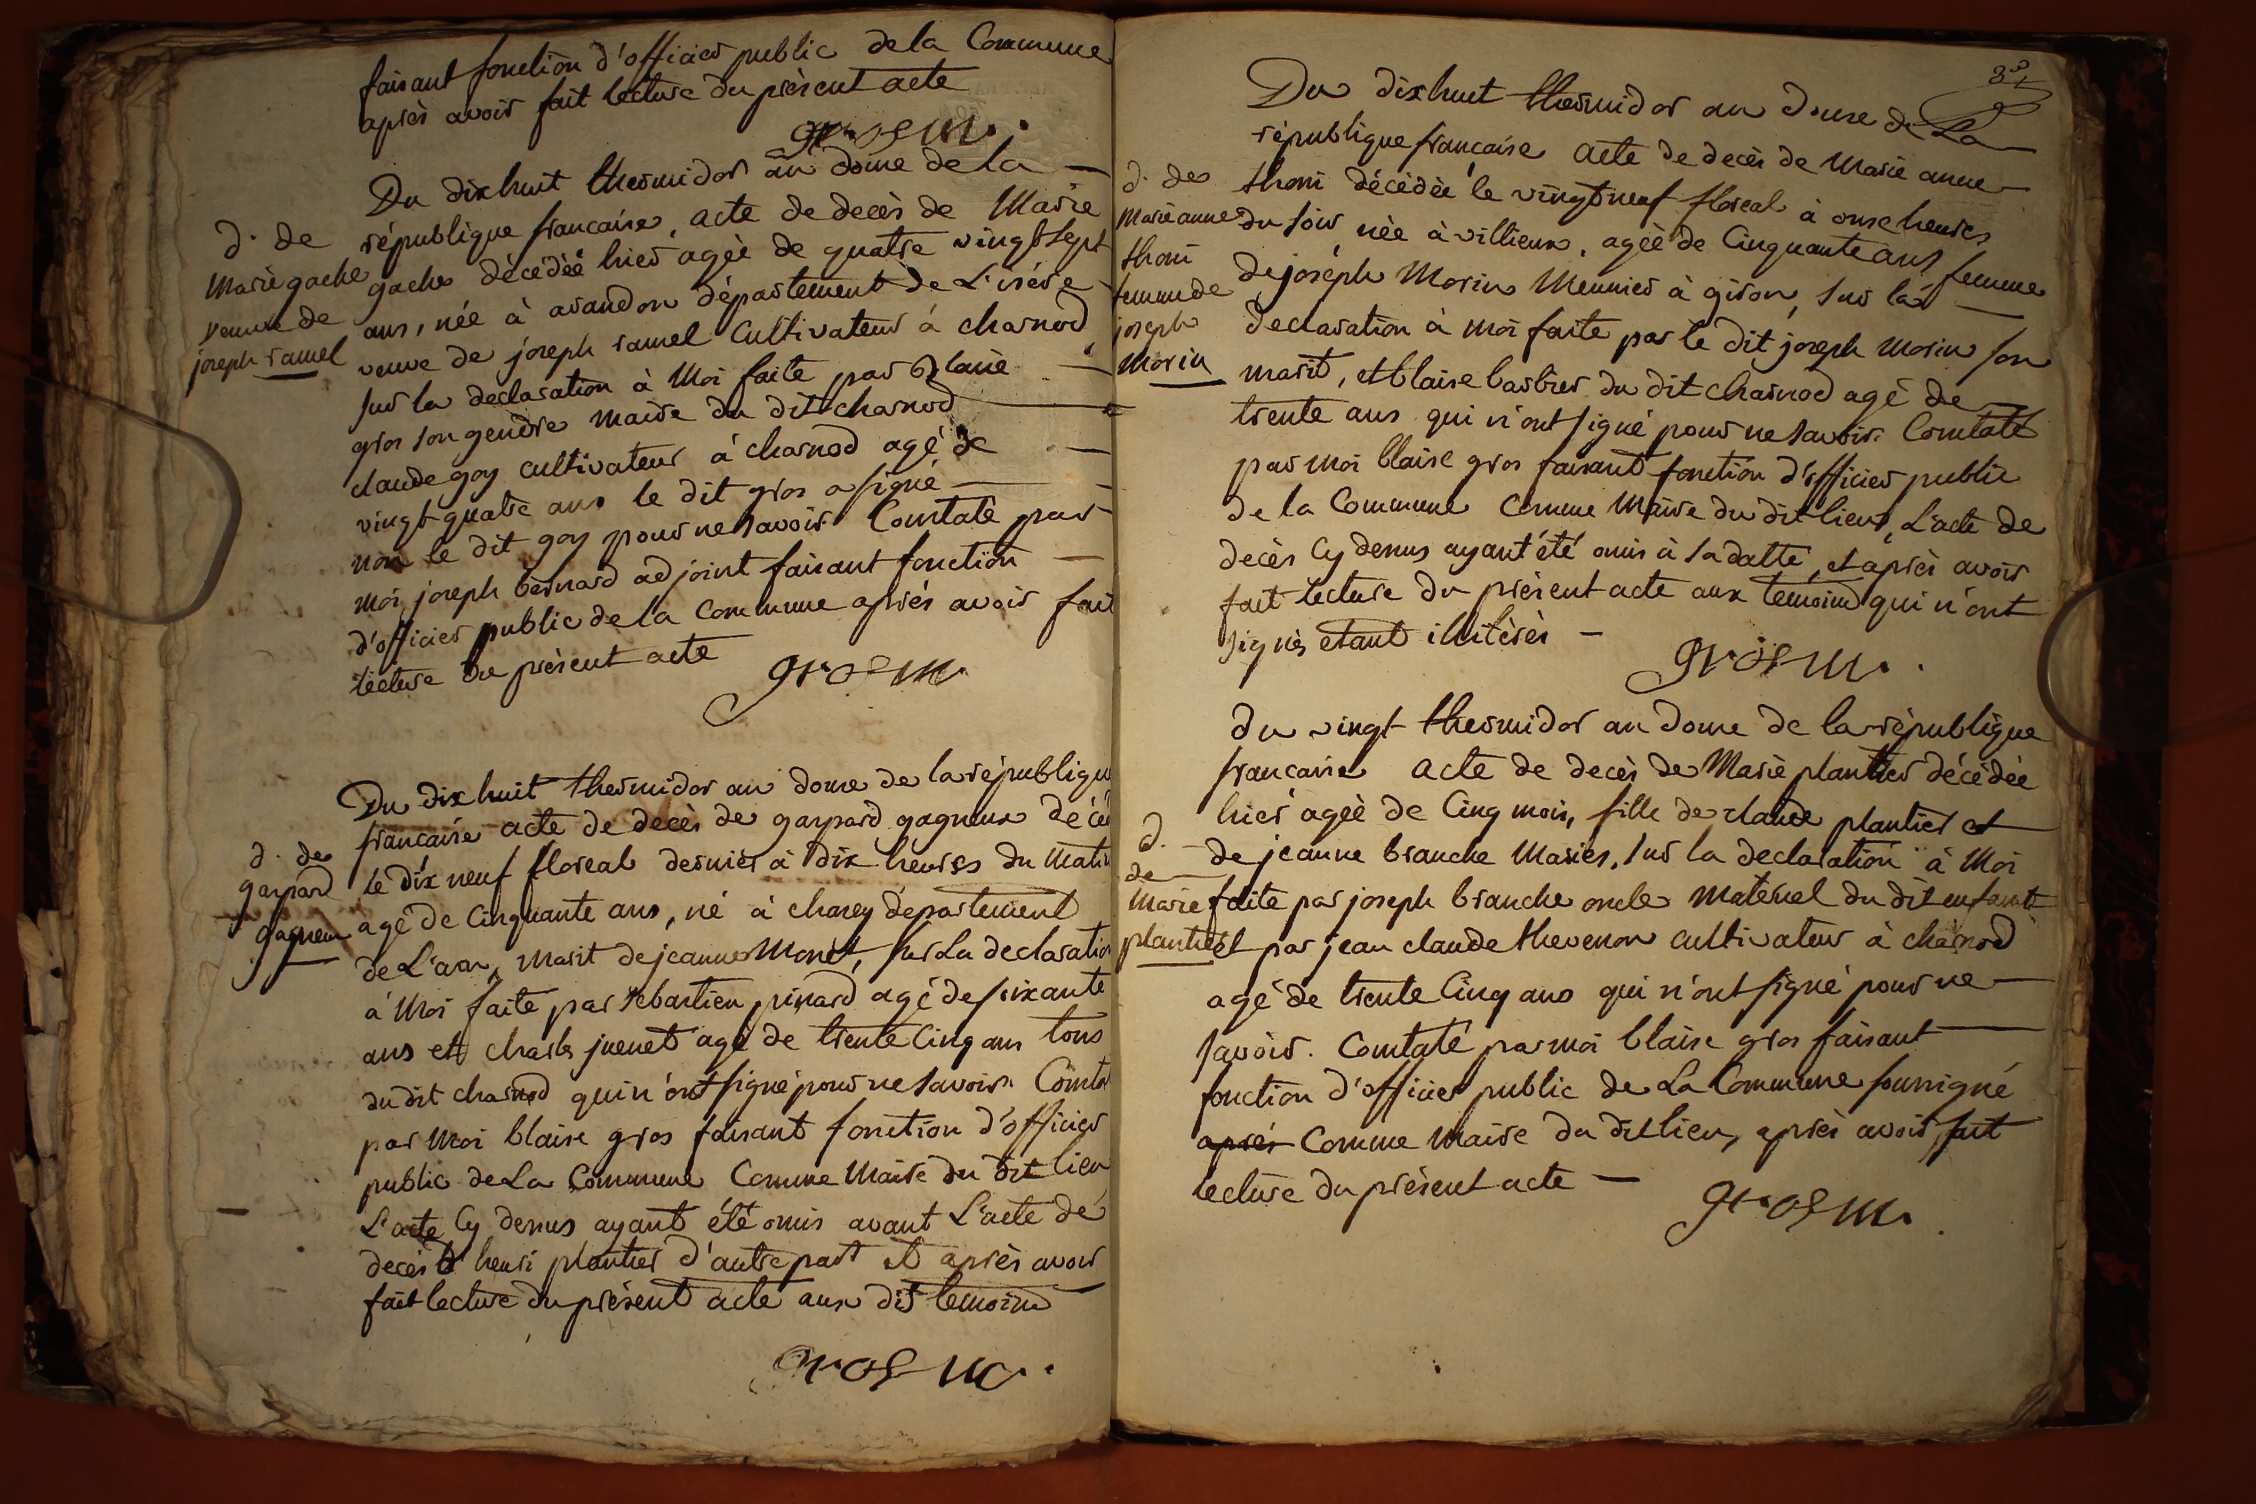 faisant fonction d'officier public de la Commune
après avoir fait lecture du présent acte
gros m.
Du dix huit thermidor an douze de la
république francaise, acte de decès de Marie
gache décédéé hier agèe de quatre vingt sept
ans, née à avandon département de L'isére
veuve de joseph ramel Cultivateur á charnod,
sur la declaration à Moi faite par Blaise
gros son gendre maire du dit charnod
claude goy cultivateur á charnod agé de
vingt quatre ans le dit gros a signé
non le dit goy pour ne savoir Constaté par
moi joseph bernard adjoint faisant fonction
d'officier public de la commune aprés avoir fait
lecture du présent acte
gros m.
d. de
Marie gache
veuve de
joseph ramel
Du dix huit thermidor an douze de la républiqu
francaise acte de decès de gaspard gagneux décé
le dix neuf floreal dernier à dix heures du Matin
agé de Cinquante ans, né à charey département
de L'ain, marit de jeanne Monet, sur La declaration
á Moi faite par sebastien pinard agé de soixante
ans et charles juenet agé de trente Cinq ans tous
du dit charnod qui n'ont signé pour ne savoir. Consta
par Moi blaise gros faisant fonction d'officier
public de La Commune Comme Maire du dit lieu
L'acte Cy dessus ayant été omis avant L'acte de
decès d'henri plantier d'autre part et après avoir
fait lecture du présent acte aux dits temoins
gros m.
d. de
gaspard
gagneux
Du dix huit thermidor an douze de La
république francaise acte de decès de Marie anne
thoni décédèe le vingt neuf floreal à onse heures
du soir, nèe à villieux, agéè de Cinquante ans femme
de joséph Morin Meunier à giron, sur la
declaration à moi faite par le dit joseph Morin son
marit, et blaise barbier du dit charnod agé de
trente ans qui n'ont signé pour ne savoir. Constaté
par moi blaise gros faisant fonction d'officier public
de la Commune Comme Maire du dit lieu, L'acte de
decès Cy dessus ayant été omis à sa datte, et aprèr avoir
fait lecture du présent acte aux temoins qui n'ont
signés etant illitérés
gros m.
d. de
Marie anne
thoni
femme de
joseph
Morin
du vingt thermidor an douze de la république
francaise acte de decès de Marie plantier décédée
hier agèè de Cinq mois, fille de claude plantier et
de jeanne branche Mariés, sur la declaration à Moi
faite par joseph branche oncle maternel du dit enfant
et par jean claude thevenon cultivateur à charnod
agé de trente Cinq ans qui n'ont signé pour ne
savoir. Constaté par moi blaise gros faisant
fonction d'officier public de La Commune soussigné
aprés Comme Maire du dit lieu, après avoir fait
lecture du présent acte
gros m.
d.
de
Marie
plantier